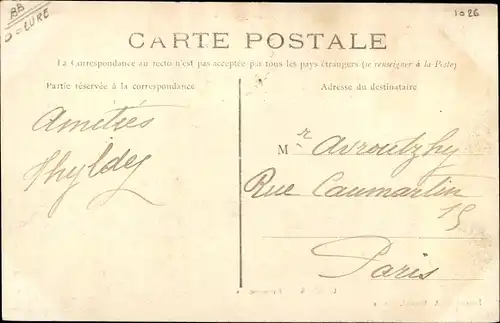 BB
EURE
1026
CARTE POSTALE
La Correspondance au recto n'est pas acceptée par tous les pays étrangers (se renseigner à la Poste)
Partie réservée à la correspondance
Adresse du destinataire
Amitiés
Thyldey
Mr Avroutzhy
Rue Caumartin
15
Paris